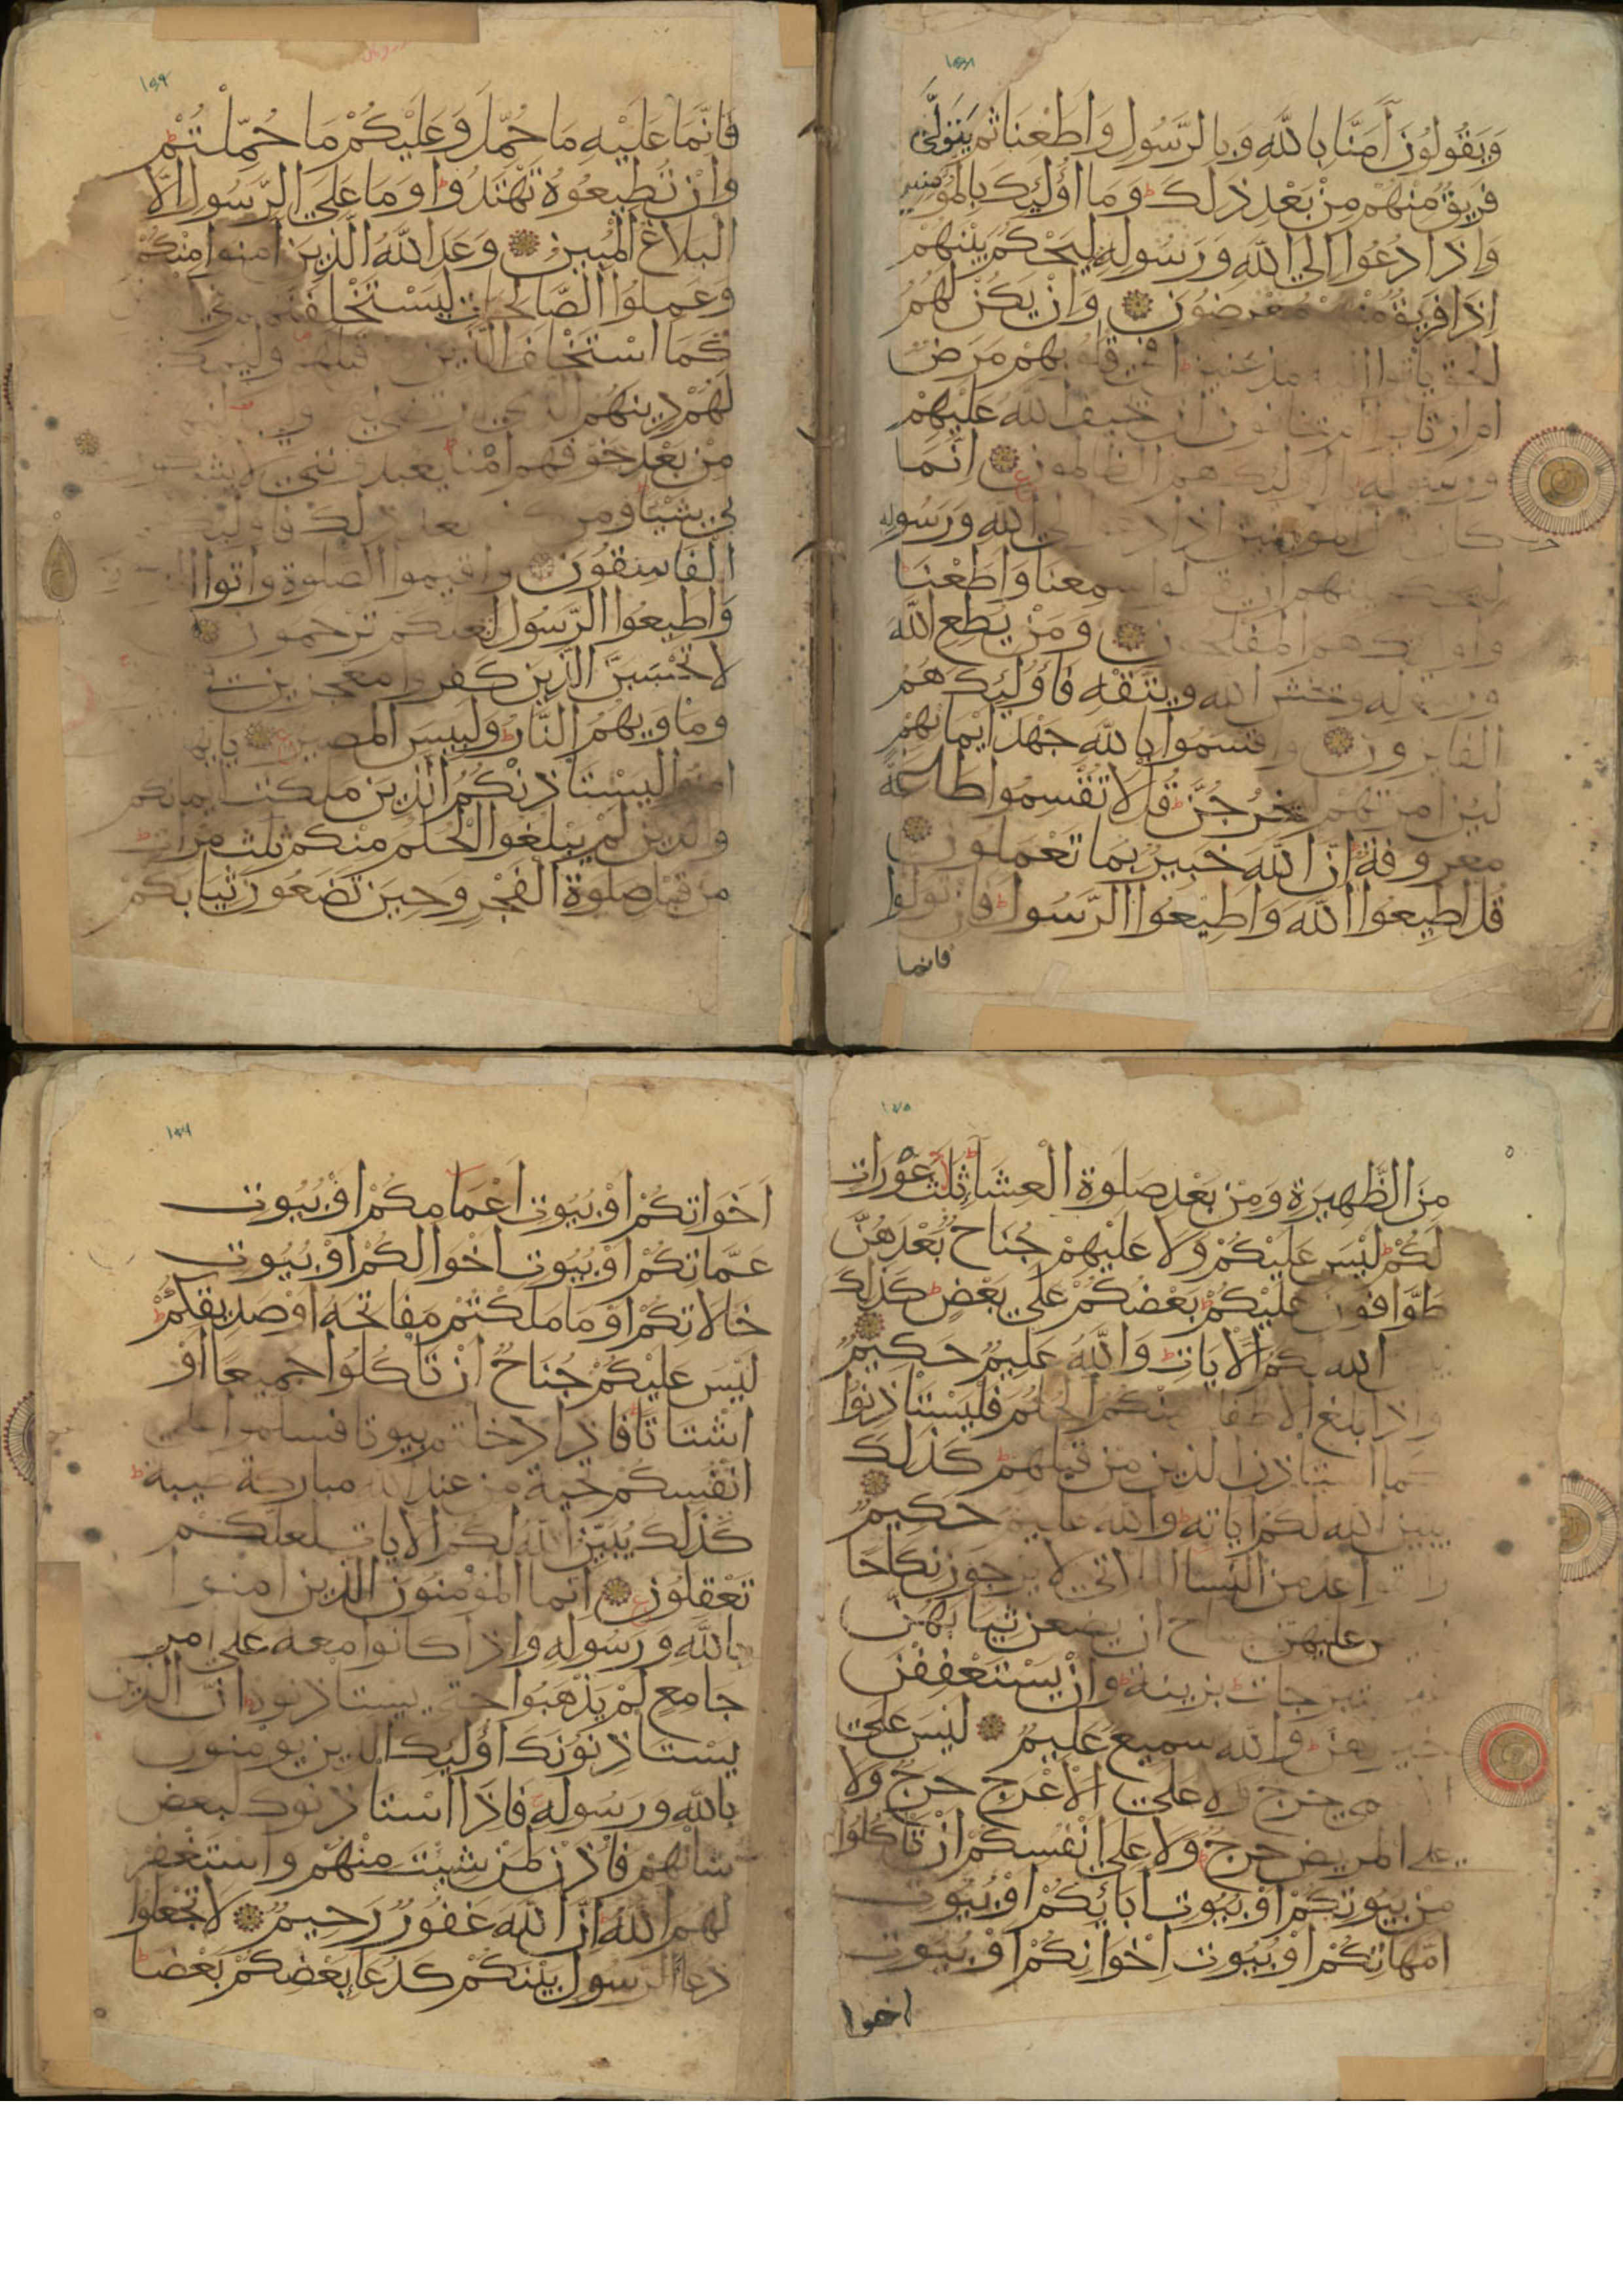 ١٥٣
وَيَقُولُونَ آمَنَّا بِاللَّهِ وَبِالرَّسُولِ وَأَطَعْنَا ثُمَّ يَتَوَلَّى
فَرِيقٌ مِنْهُمْ مِنْ بَعْدِ ذَلِكَ وَمَا أُولَئِكَ بِالْمُؤْمِنِينَ
وَإِذَا دُعُوا إِلَى اللَّهِ وَرَسُولِهِ لِيَحْكُمَ بَيْنَهُمْ
إِذَا فَرِيقٌ مِنْهُمْ مُعْرِضُونَ وَإِنْ يَكُنْ لَهُمُ
الحق يأتوا إليه مذعنين أفي قلوبهم مَرَضٌ
أم ارتابوا أم يخافون أن يحيف الله عَلَيْهِمْ
ورسوله بل أولئك هم الظالمون إِنَّمَا
كان المؤمنين إذا إلى الله وَرَسُولِهِ
ليحكم بينهم أن يقولوا سمعنا وَأَطَعْنَا
وأولئك هم المفلحون وَمَنْ يُطِعِ اللَّهَ
ورسوله ويخش الله وَيَتَّقْهِ فَأُولَئِكَ هُمُ
الفايزون وأقسموا بِاللَّهِ جَهْدَ أَيْمَانِهِمْ
لئن أمرتهم ليخرجن قُلْ لَا تُقْسِمُوا طَاعَةٌ
معروفة إِنَّ اللَّهَ خَبِيرٌ بِمَا تَعْمَلُونَ
قُلْ أَطِيعُوا اللَّهَ وَأَطِيعُوا الرَّسُولَ فَإِنْ تَوَلَّوْا
فانما
١٥٤
فَإِنَّمَا عَلَيْهِ مَا حُمِّلَ وَعَلَيْكُمْ مَا حُمِّلْتُمْ
وَإِنْ تُطِيعُوهُ تَهْتَدُوا وَمَا عَلَى الرَّسُولِ إِلَّا
الْبَلَاغُ الْمُبِينُ وَعَدَ اللَّهُ الَّذِينَ آمَنُوا مِنْكُمْ
وَعَمِلُوا الصَّالِحَاتِ لَيَسْتَخْلِفَنَّهُمْ في
كَمَا اسْتَخْلَفَ الَّذِينَ قبلهم وليمكنن
لَهُمْ دِينَهُمُ الذي ارتضى
مِنْ بَعْدِ خَوْفِهِمْ أَمْنًا يعبدونني لا يشركون
بي شيئا ومن بعد ذلك فأولئك
الْفَاسِقُونَ وأقيموا الصلوة وآتوا
وَأَطِيعُوا الرَّسُولَ لعلكم ترحمون
لَا تَحْسَبَنَّ الَّذِينَ كَفَرُوا معجزين
وَمَأْوَيهُمُ النَّارُ وَلَبِئْسَ المصير يايها
آمنوا لِيَسْتَأْذِنْكُمُ الَّذِينَ مَلَكَتْ أيمانكم
والذين لَمْ يَبْلُغُوا الْحُلُمَ مِنْكُمْ ثَلَثَ مَرَّاتٍ
من قبل صَلَوةِ الْفَجْرِ وَحِينَ تَضَعُونَ ثِيَابَكُمْ
١٥٥
مِنَ الظَّهِيرَةِ وَمِنْ بَعْدِ صَلَوةِ الْعِشَاءِ ثَلَثُ عَوْرَاتٍ
لَكُمْ لَيْسَ عَلَيْكُمْ وَلَا عَلَيْهِمْ جُنَاحٌ بَعْدَهُنَّ
طَوَّافُونَ عَلَيْكُمْ بَعْضُكُمْ عَلَى بَعْضٍ كَذَلِكَ
الله لكم الْآيَاتِ وَاللَّهُ عَلِيمٌ حَكِيمٌ
وإذا بلغ الأطفال منكم الحلم فَلْيَسْتَأْذِنُوا
كما استأذن الذين من قبلهم كَذَلِكَ
يبين الله لكم آياته والله عليم حَكِيمٌ
والقواعد من النسا اللاتي لا يرجون نِكَاحًا
عليهن جناح أن يضعن ثِيَابَهُنَّ
غير متبرجات بزينة وَأَنْ يَسْتَعْفِفْنَ
خير لهن والله سَمِيعٌ عَلِيمٌ لَيْسَ عَلَى
حرج ولا على الْأَعْرَجِ حَرَجٌ وَلَا
على المريض حَرَجٌ وَلَا عَلَى أَنْفُسِكُمْ أَنْ تَأْكُلُوا
مِنْ بُيُوتِكُمْ أَوْ بُيُوتِ آبَائِكُمْ أَوْ بُيُوتِ
أُمَّهَاتِكُمْ أَوْ بُيُوتِ إِخْوَانِكُمْ أَوْ بُيُوتِ
اخوا
١٥٦
أَخَوَاتِكُمْ أَوْ بُيُوتِ أَعْمَامِكُمْ أَوْ بُيُوتِ
عَمَّاتِكُمْ أَوْ بُيُوتِ أَخْوَالِكُمْ أَوْ بُيُوتِ
خَالَاتِكُمْ أَوْ مَا مَلَكْتُمْ مَفَاتِحَهُ أَوْ صَدِيقِكُمْ
لَيْسَ عَلَيْكُمْ جُنَاحٌ أَنْ تَأْكُلُوا جَمِيعًا أَوْ
أَشْتَاتًا فَإِذَا دخلتم بيوتا فسلموا على
أَنْفُسِكُمْ تحية من عند الله مباركة طيبة
كَذَلِكَ يُبَيِّنُ اللَّهُ لَكُمُ الْآيَاتِ لَعَلَّكُمْ
تَعْقِلُونَ إِنَّمَا الْمُؤْمِنُونَ الَّذِينَ آمنوا
بِاللَّهِ وَرَسُولِهِ وَإِذَا كَانُوا مَعَهُ عَلَى أَمْرٍ
جَامِعٍ لَمْ يَذْهَبُوا حتى يستأذنوه إن الذين
يَسْتَأْذِنُونَكَ أُولَئِكَ الذين يومنون
بِاللَّهِ وَرَسُولِهِ فَإِذَا اسْتَأْذَنُوكَ لبعض
شأنهم فَأْذَنْ لِمَنْ شِئْتَ مِنْهُمْ وَاسْتَغْفِرْ
لَهُمُ اللَّهَ إِنَّ اللَّهَ غَفُورٌ رَحِيمٌ لَا تَجْعَلُوا
دُعَا الرسول بَيْنَكُمْ كَدُعَاءِ بَعْضِكُمْ بَعْضًا